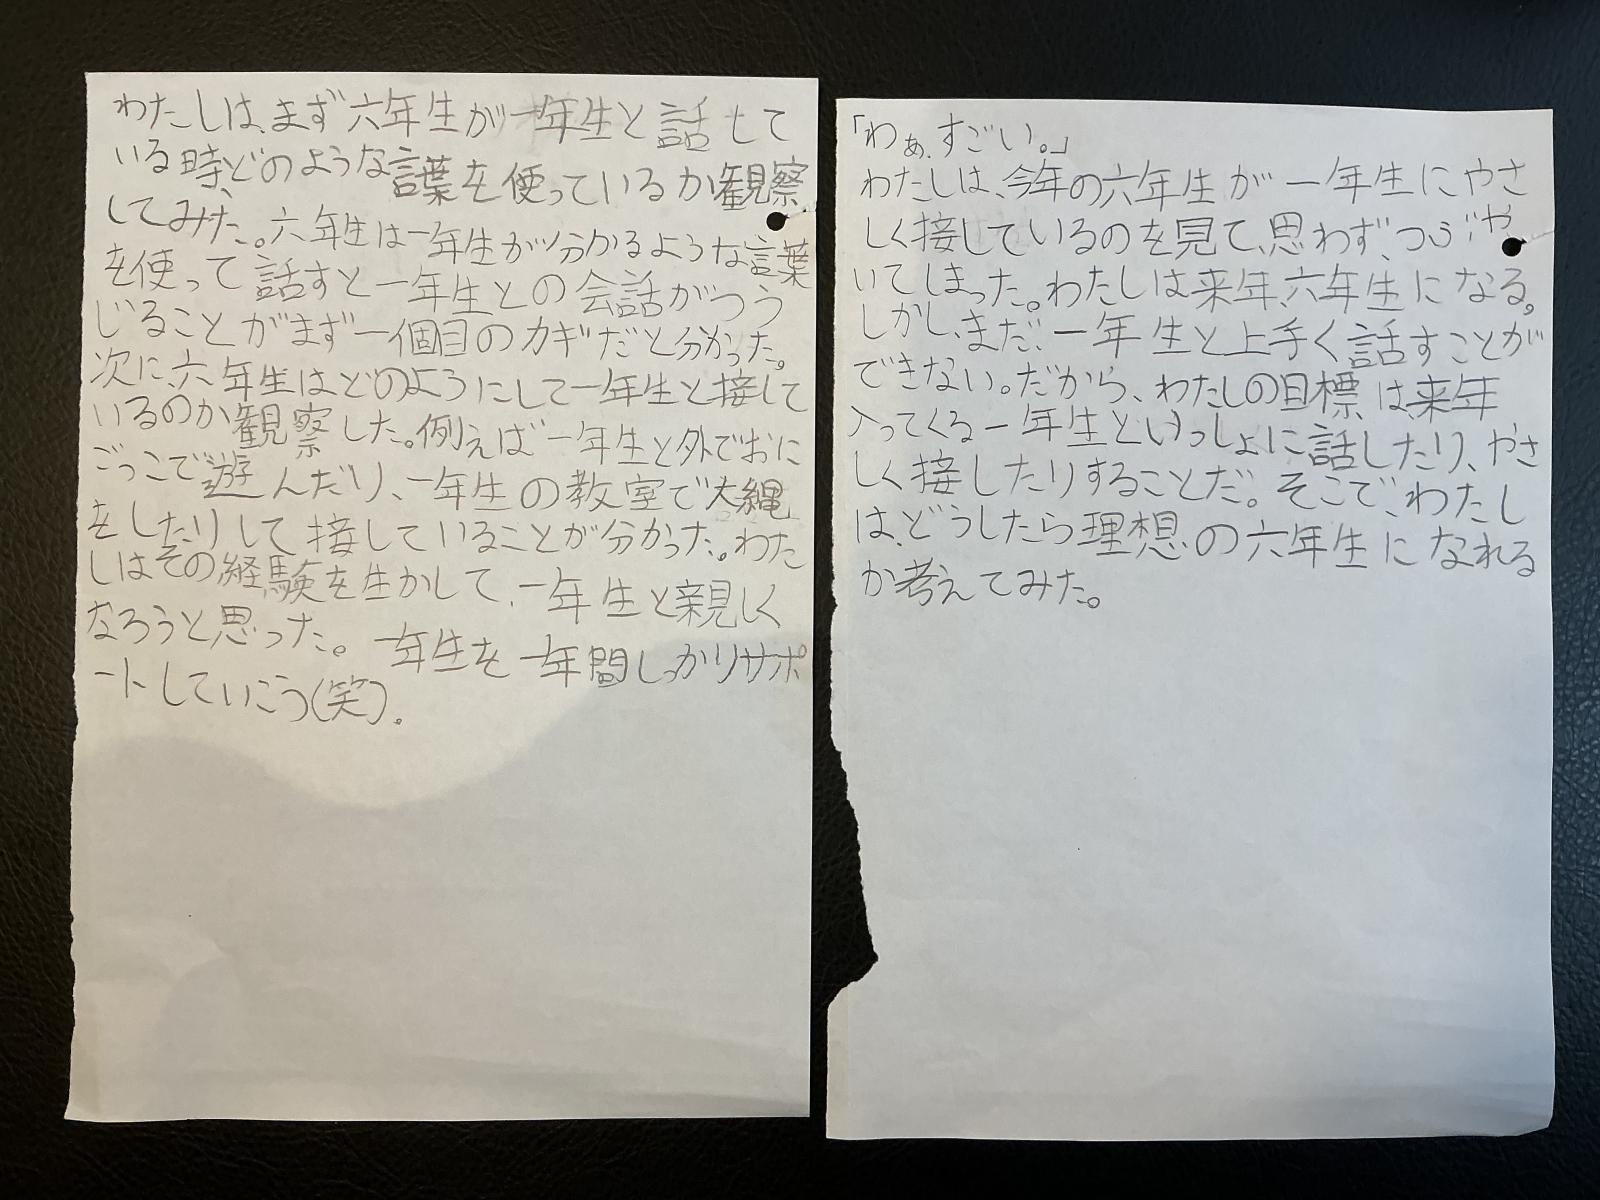 わたしは、まず六年生が一年生と話して
いる時、どのような言葉を使っているか観察
してみた。六年生は一年生が分かるような言葉
を使って話すと一年生との会話がつう
じることがまず一個目のカギだと分かった。
次に、六年生はどのようにして一年生と接して
いるのか観察した。例えば一年生と外でおに
ごっこで遊んだり、一年生の教室で大縄
をしたりして接していることが分かった。わた
しはその経験を生かして、一年生と親しく
なろうと思った。一年生を一年間しっかりサポ
ートしていこう(笑)。
「わぁ、すごい。」
わたしは、今年の六年生が一年生にやさ
しく接しているのを見て、思わず、つぶや
いてしまった。わたしは来年、六年生になる。
しかし、まだ、一年生と上手く話すことが
できない。だから、わたしの目標は来年
入ってくる一年生といっしょに話したり、やさ
しく接したりすることだ。そこで、わたし
は、どうしたら理想の六年生になれる
か考えてみた。